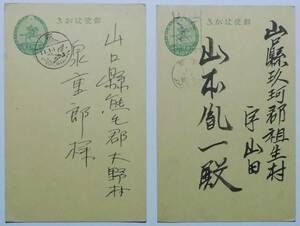 郵便はがき
山口縣熊毛郡大野村
泉重郎様
郵便はがき
山口縣玖珂郡祖生村
字山田
山本胤一殿